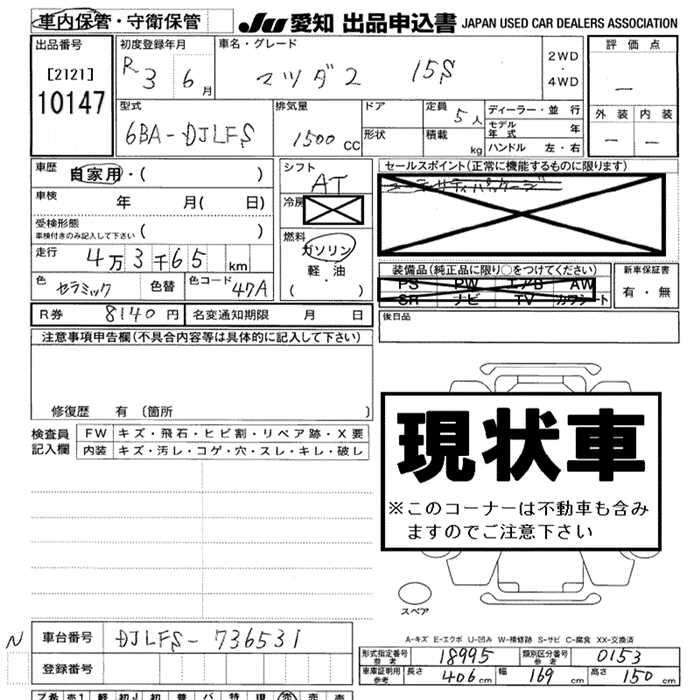 車内保管・守衛保管
JU 愛知 出品申込書 JAPAN USED CAR DEALERS ASSOCIATION
出品番号
[2121]
10147
初度登録年月
R 3 6月
車名・グレード
マツダ2 15S
2WD
・
4WD
評価点
—
外装 内装
— —
型式
6BA-DJLFS
排気量
1500cc
ドア
形状
定員 5人
積載 kg
ディーラー・並行
モデル年式 年
ハンドル 左・右
車歴 自家用・( )
車検 年 月( 日)
受検形態
車検付きのみ記入して下さい ( )
走行 4万3千65 km
色 セラミック 色替 色コード 47A
シフト
AT
冷房
燃料
ガソリン
軽・油
( ・ )
セールスポイント(正常に機能するものに限ります)
装備品(純正品に限り○をつけてください)
PS PW エアB AW
SR ナビ TV カワシート
新車保証書
有・無
R券 8140円 名変通知期限 月 日
後日品
注意事項申告欄(不具合内容等は具体的に記入して下さい)
修復歴 有(箇所 )
検査員記入欄
FW キズ・飛石・ヒビ割・リペア跡・X要
内装 キズ・汚レ・コゲ・穴・スレ・キレ・破レ
現状車
※このコーナーは不動車も含み
ますのでご注意下さい
スペア
A-キズ E-エクボ U-凹み W-補修跡 S-サビ C-腐食 XX-交換済
N
車台番号 DJLFS-736531
登録番号
形式指定番号 参考 18995 類別区分番号 参考 0153
車庫証明用 参考 長さ 406cm 幅 169cm 高さ 150cm